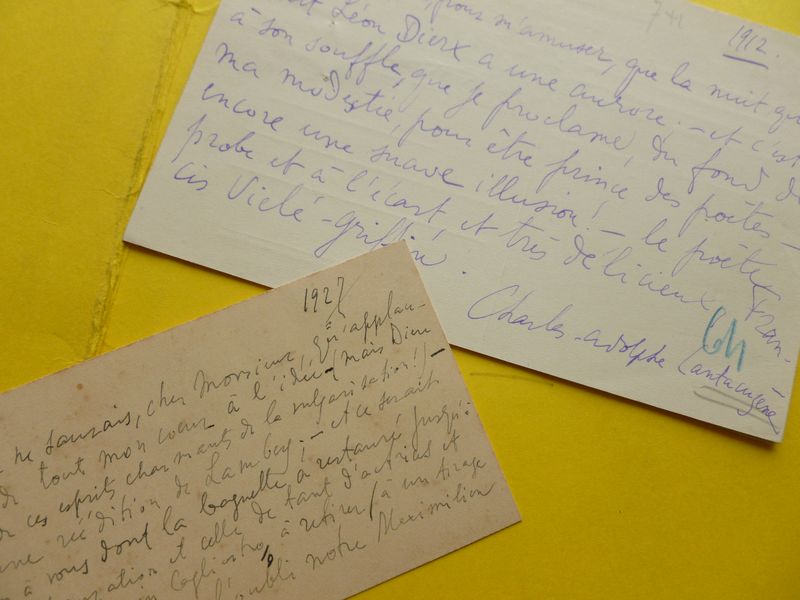 pour m'amuser, que la nuit qu
1912.
Léon Dierx a une aurore. — et c'est
à son souffle, que je proclame, du fond de
ma modestie, pour être prince des poètes —
encore une suave illusion! — le poète
probe et à l'écart, et très délicieux, Fran-
cis Vielé-Griffin.
Charles-Adolphe Cantacuzène
64
1927
ne saurais, cher Monsieur, qu'applau-
de tout mon coeur à l'idée (mais Dieu
ces esprits charmants de la vulgarisation!) —
une réédition de Lamber; — et ce serait
à vous dont la baguette a restauré jusqu'à
et celle de tant d'actrices et
Cagliostro, à retirer (à un tirage
l'oubli notre Maximilien